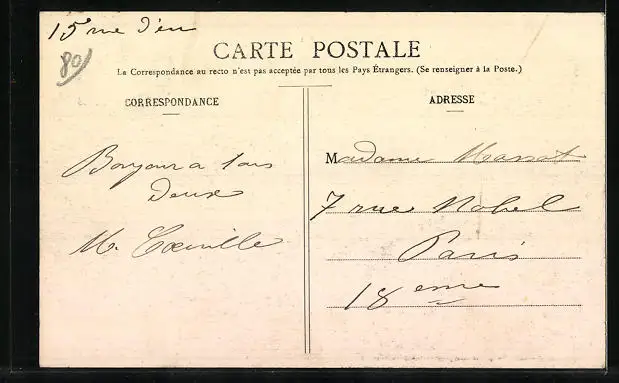 15 rue d'eu
80
CARTE POSTALE
La Correspondance au recto n'est pas acceptée par tous les Pays Étrangers. (Se renseigner à la Poste.)
CORRESPONDANCE
Bonjour a tous
Deux
M.
ADRESSE
Madame
7 rue Nobel
Paris
18 eme